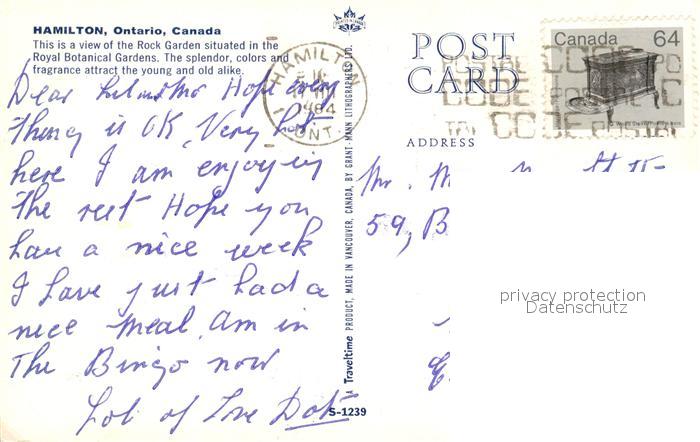 HAMILTON, Ontario, Canada
This is a view of the Rock Garden situated in the
Royal Botanical Gardens. The splendor, colors and
fragrance attract the young and old alike.
Dear Hope every
thing is OK, Very hot
here I am enjoying
the rest Hope you
have a nice week
I have just had a
nice meal, am in
the Bingo now
Lot of Love Dot
POST
CARD
ADDRESS
Canada 64
HAMILTON
1984
ONT.
POSTAL
CODE
CODE POSTAL
Mr. M
59, B
privacy protection
Datenschutz
A Traveltime PRODUCT, MADE IN VANCOUVER, CANADA, BY GRANT-MANN LITHOGRAPHERS LTD.
S-1239